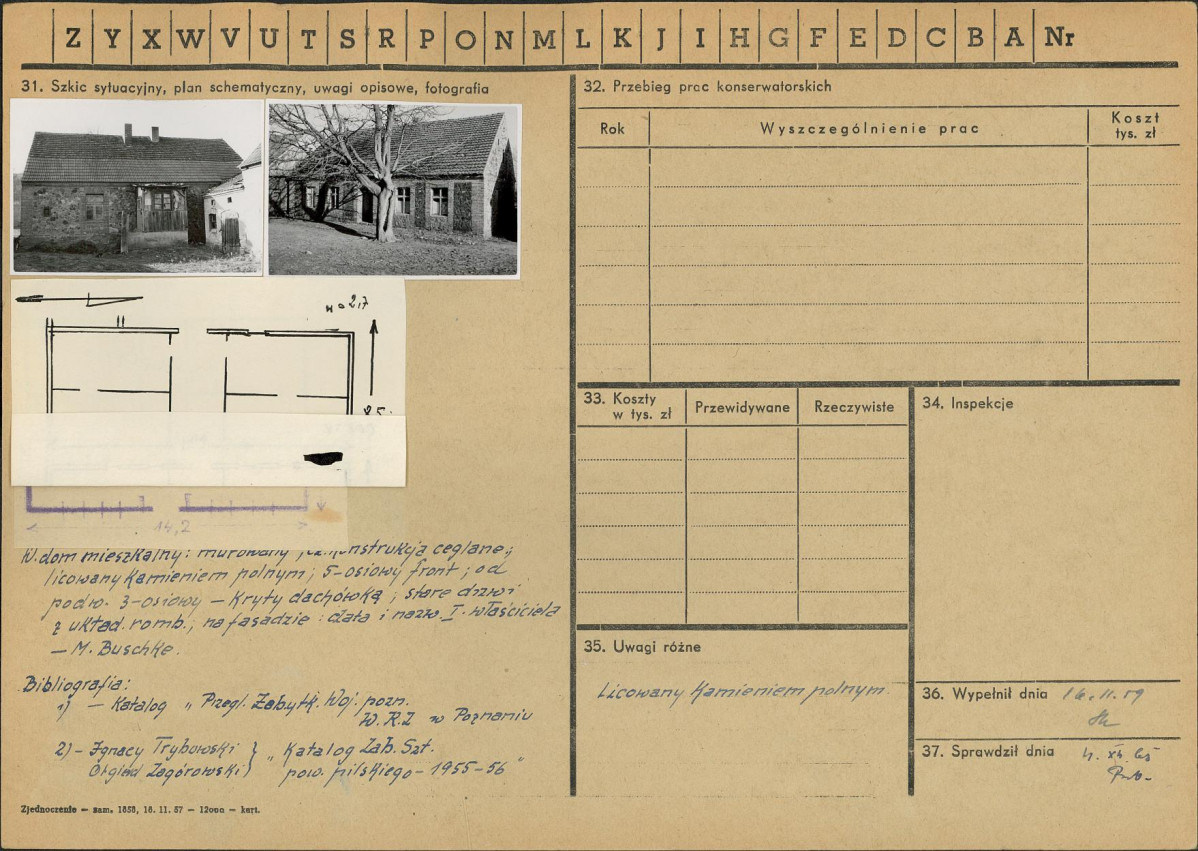 Z Y X W V U T S R P O N M L K J I H G F E D C B A Nr
31. Szkic sytuacyjny, plan schematyczny, uwagi opisowe, fotografia
14,2
W. dom mieszkalny: murowany, konstrukcja ceglane;
licowany kamieniem polnym; 5-osiowy front; od
podw. 3-osiowy – kryty dachówką; stare drzwi
z układ. romb., na fasadzie: data i nazw. I. właściciela
– M. Buschke.
Bibliografia:
1) – Katalog „ Przegl. Zabytk. Woj. pozn.
W.R.Z w Poznaniu
2) – Ignacy Trybowski } „ Katalog Zab. Szt.
Zagórowski } pow. pilskiego – 1955-56 "
Zjednoczenie – zam. 1858, 16. 11. 57 – 12000 – kart.
32. Przebieg prac konserwatorskich
Rok Wyszczególnienie prac Koszt tys. zł
33. Koszty w tys. zł Przewidywane Rzeczywiste
34. Inspekcje
35. Uwagi różne
Licowany kamieniem polnym
36. Wypełnił dnia 16.11.59
37. Sprawdził dnia